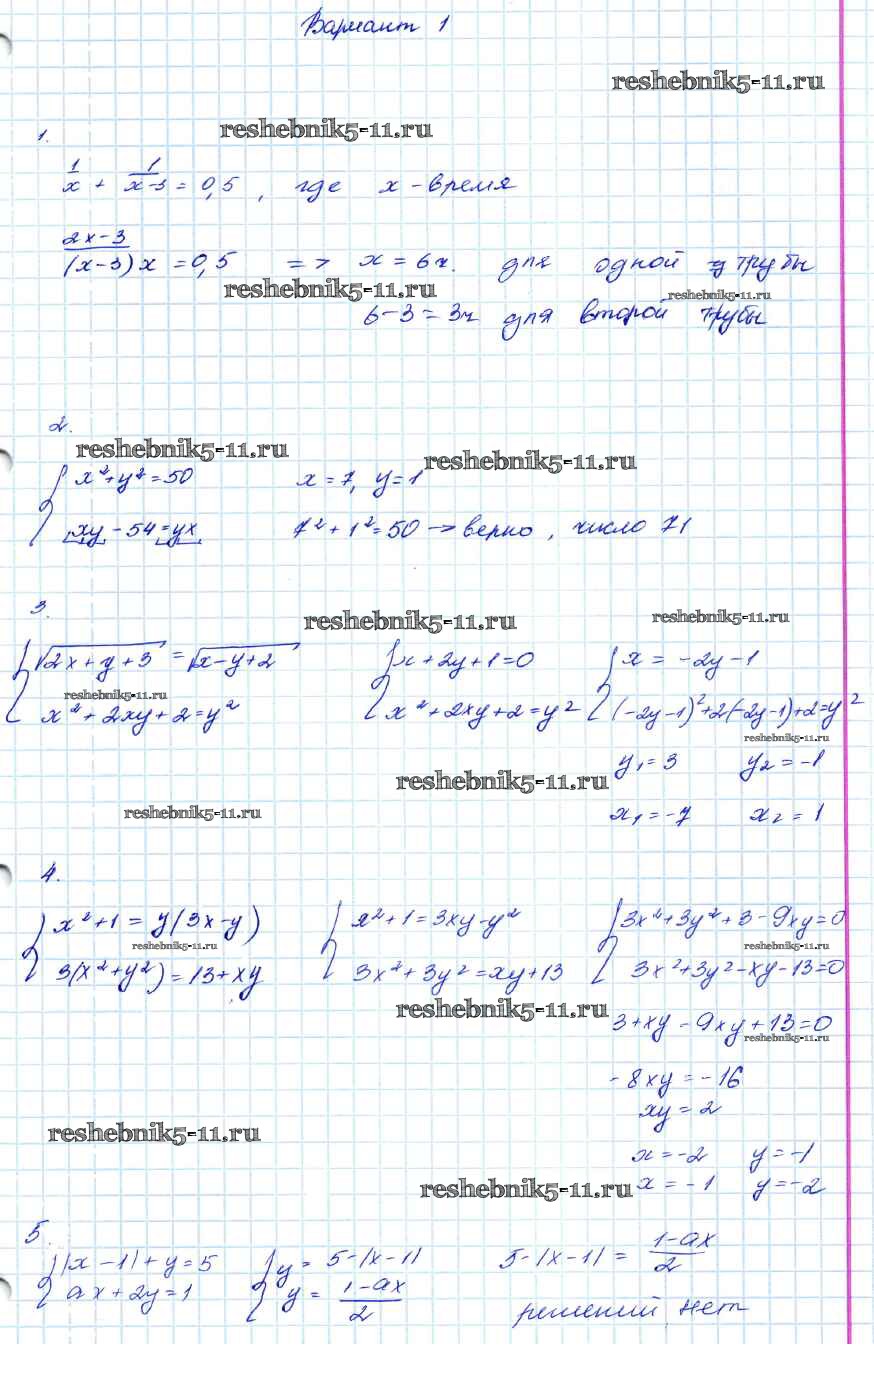 Вариант 1
reshebnik5-11.ru
reshebnik5-11.ru
1.
1/x + 1/(x-3) = 0,5 , где x - время
(2x-3)/((x-3)x) = 0,5 => x = 6ч. для одной трубы
reshebnik5-11.ru
reshebnik5-11.ru
6-3 = 3ч для второй трубы
2.
reshebnik5-11.ru
reshebnik5-11.ru
{ x²+y²=50 x=7, y=1
xy - 54 = yx 7²+1²=50 → верно, число 71
3.
reshebnik5-11.ru
reshebnik5-11.ru
{ √(2x+y+3) = √(x-y+2) { x+2y+1=0 { x = -2y-1
reshebnik5-11.ru
x²+2xy+2=y² x²+2xy+2=y² (-2y-1)²+2(-2y-1)+2=y²
reshebnik5-11.ru
y₁=3 y₂=-1
reshebnik5-11.ru
reshebnik5-11.ru
x₁=-7 x₂=1
4.
{ x²+1 = y(3x-y) { x²+1=3xy-y² { 3x²+3y²+3-9xy=0
reshebnik5-11.ru
reshebnik5-11.ru
3(x²+y²)=13+xy 3x²+3y²=xy+13 3x²+3y²-xy-13=0
reshebnik5-11.ru
3+xy-9xy+13=0
reshebnik5-11.ru
-8xy=-16
xy=2
reshebnik5-11.ru
x=-2 y=-1
reshebnik5-11.ru
x=-1 y=-2
5.
{ |x-1|+y=5 { y=5-|x-1| 5-|x-1| = (1-ax)/2
ax+2y=1 y=(1-ax)/2
решений нет